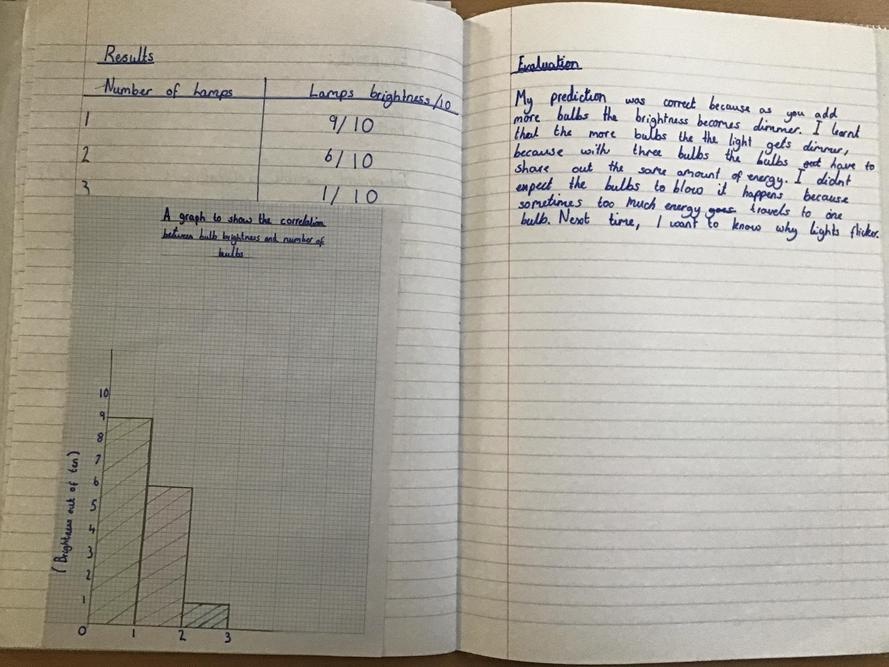 Results
Number of Lamps Lamps brightness/10
1 9/10
2 6/10
3 1/10
A graph to show the correlation
between bulb brightness and number of
bulbs
(Brightness out of ten)
10
9
8
7
6
5
4
3
2
1
0 1 2 3
Evaluation
My prediction was correct because as you add
more bulbs the brightness becomes dimmer. I learnt
that the more bulbs the the light gets dimmer,
because with three bulbs the bulbs got have to
share out the same amount of energy. I didnt
expect the bulbs to blow it happens because
sometimes too much energy goes travels to one
bulb. Next time, I want to know why lights flicker.